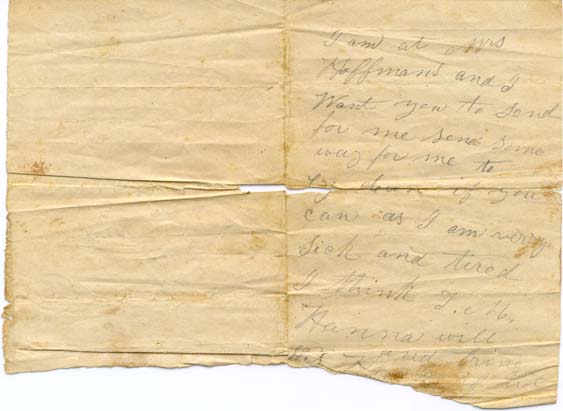 I am at Mrs
Hoffmans and I
Want you to send
for me send some
way for me to
ly down if you
can as I am verry
Sick and tired
I think J. M.
Hanna will
send him
if not